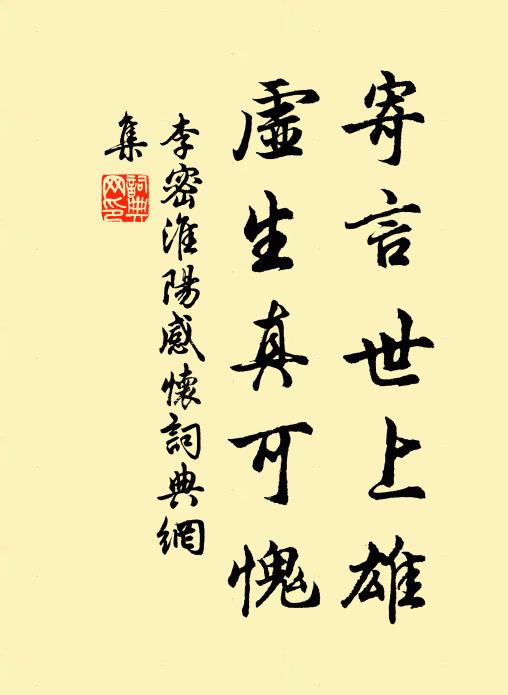 寄言世上雄
虛生真可愧
李密淮陽感懷詞典網
集
詞典
网印